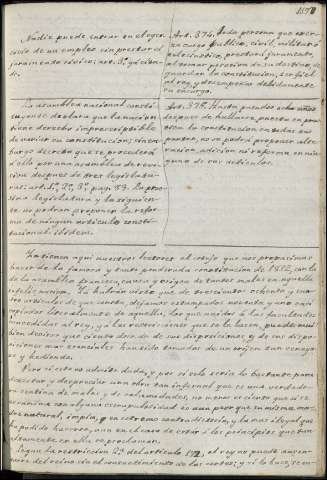 Nadie puede entrar en el egercicio
de un empleo sin prestar el
juramento cívico; art. 3º
Art. 374. Toda persona que exerza
cargo público, civil, militar ó
eclesiástico, prestará juramento,
al tomar posesion de su destino, de
guardar la constitucion, ser fiel
al rey, y desempeñar debidamente
su encargo.
La asamblea nacional constituyente
declara que la nacion
tiene derecho imprescriptible
de variar su constitucion; sin embargo
decreta que se procederá
á ello por una asamblea de revision
despues de tres legislaturas:
art. 1º, 2º, 3º pag. 53. La proxîma
legislatura y la siguiente
no podrán proponer la reforma
de ningun artículo constitucional.
Ibidem.
Art. 375. Hasta pasados ocho años
despues de hallarse puesta en practica
la constitucion en todas sus
partes, no se podrá proponer alteracion,
adicion ni reforma en ninguno
de sus artículos.
Ya tienen aquí nuestros lectores el cotejo que nos propusimos
hacer de la famosa y tanto ponderada constitucion de 1812, con la
de la asamblea francesa, causa y origen de tantos males en aquella
infeliz nacion. Ya habrán visto que de trescientos ochenta y cuatro
artículos de que consta, dejamos estampados noventa y uno casi
copiados literalmente de aquella, los que unidos á las facultades
concedidas al rey, y á las restricciones que se le hacen, puede muy
bien decirse que ciento doce de sus disposiciones y de sus disposiciones
mas esenciales han sido tomadas de un origen tan
y hediondo.
Pero si esto no admite duda, y por sí solo sería lo bastante para
execrar y despreciar una obra tan infernal que es una verdadera
sentina de males y de calamidades, no menos es cierto que si se
exâmina con alguna escrupulosidad es aun peor que su misma madre
natural, impía, en extremo contradictoria, y la mas ilegal que
ha podido hacerse, aun en el caso de estar á los principios que tan
altamente en ella se proclaman.
Segun la restriccion 2ª del artículo 172, el rey no puede ausentarse
del reino sin el consentimiento de las cortes; y si lo hace, se en-